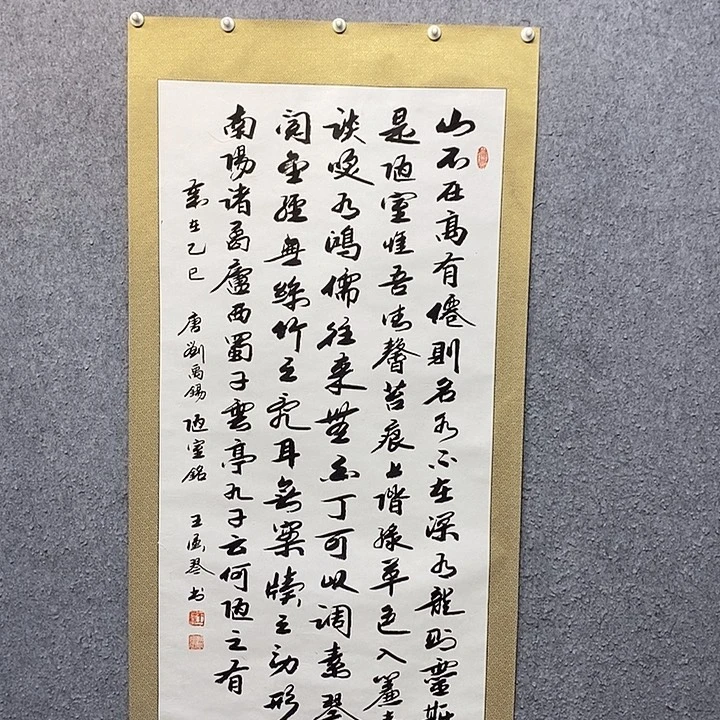 山不在高有僊則名水不在深有龍則靈斯
是陋室惟吾德馨苔痕上階綠草色入簾青
談笑有鴻儒往來無白丁可以調素琴
閱金經無絲竹之亂耳無案牘之勞形
南陽諸葛廬西蜀子雲亭孔子云何陋之有
歲在乙巳 唐劉禹錫陋室銘 王琴书